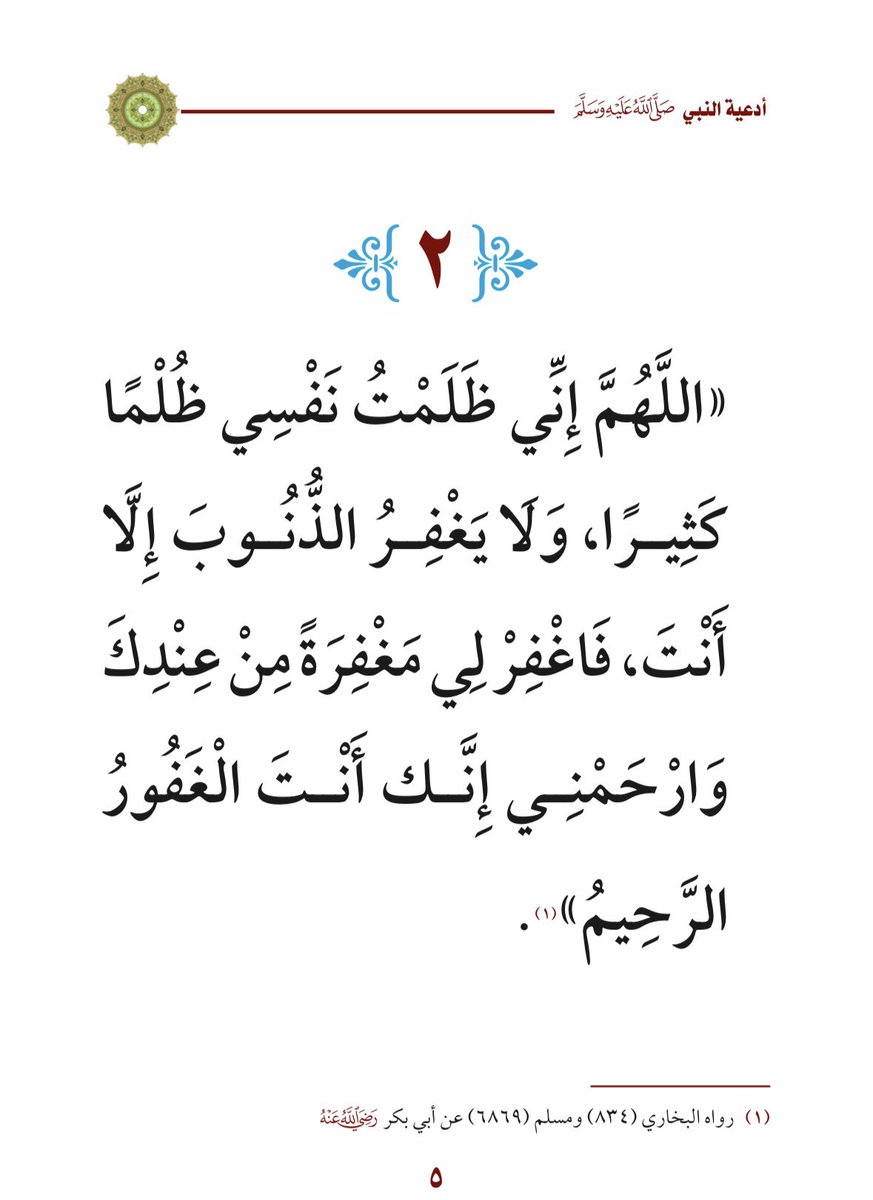 أدعية النبي صَلَّى اللَّهُ عَلَيْهِ وَسَلَّمَ
٢
«اللَّهُمَّ إِنِّي ظَلَمْتُ نَفْسِي ظُلْمًا
كَثِيرًا، وَلَا يَغْفِرُ الذُّنُوبَ إِلَّا
أَنْتَ، فَاغْفِرْ لِي مَغْفِرَةً مِنْ عِنْدِكَ
وَارْحَمْنِي إِنَّك أَنْتَ الْغَفُورُ
الرَّحِيمُ»(١).
(١) رواه البخاري (٨٣٤) ومسلم (٦٨٦٩) عن أبي بكر رَضِيَ اللَّهُ عَنْهُ
٥